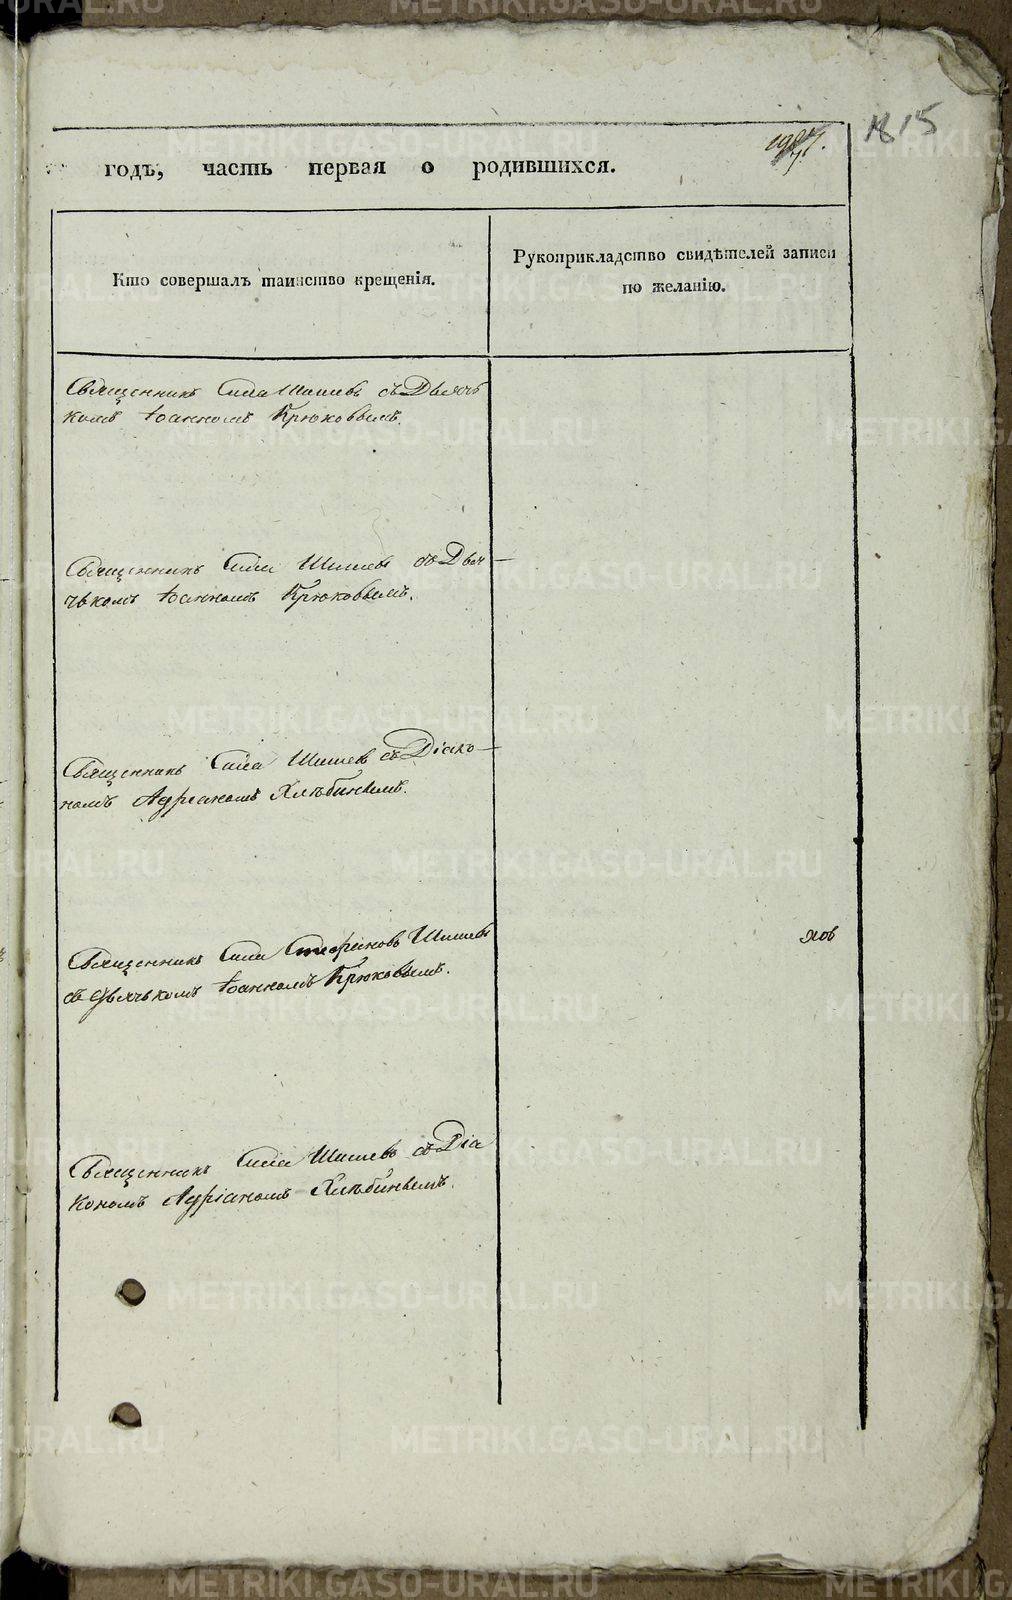 1815
годъ, часть первая о родившихся.
Кто совершалъ таинство крещенія.
Рукоприкладство свидѣтелей записи
по желанію.
Священникъ Сила Шишевъ съ Дьячь
комъ Іоанномъ Крюковымъ.
Священникъ Сила Шишевъ съ Дья
чькомъ Іоанномъ Крюковымъ.
Священникъ Сила Шишевъ съ Діако-
номъ Адріаномъ Хлѣбинымъ.
Священникъ Сила Стефановъ Шишевъ
съ дьячькомъ Іоанномъ Крюковымъ.
яов
Священникъ Сила Шишевъ съ Діа
кономъ Адріаномъ Хлѣбинымъ.
METRIKI.GASO-URAL.RU